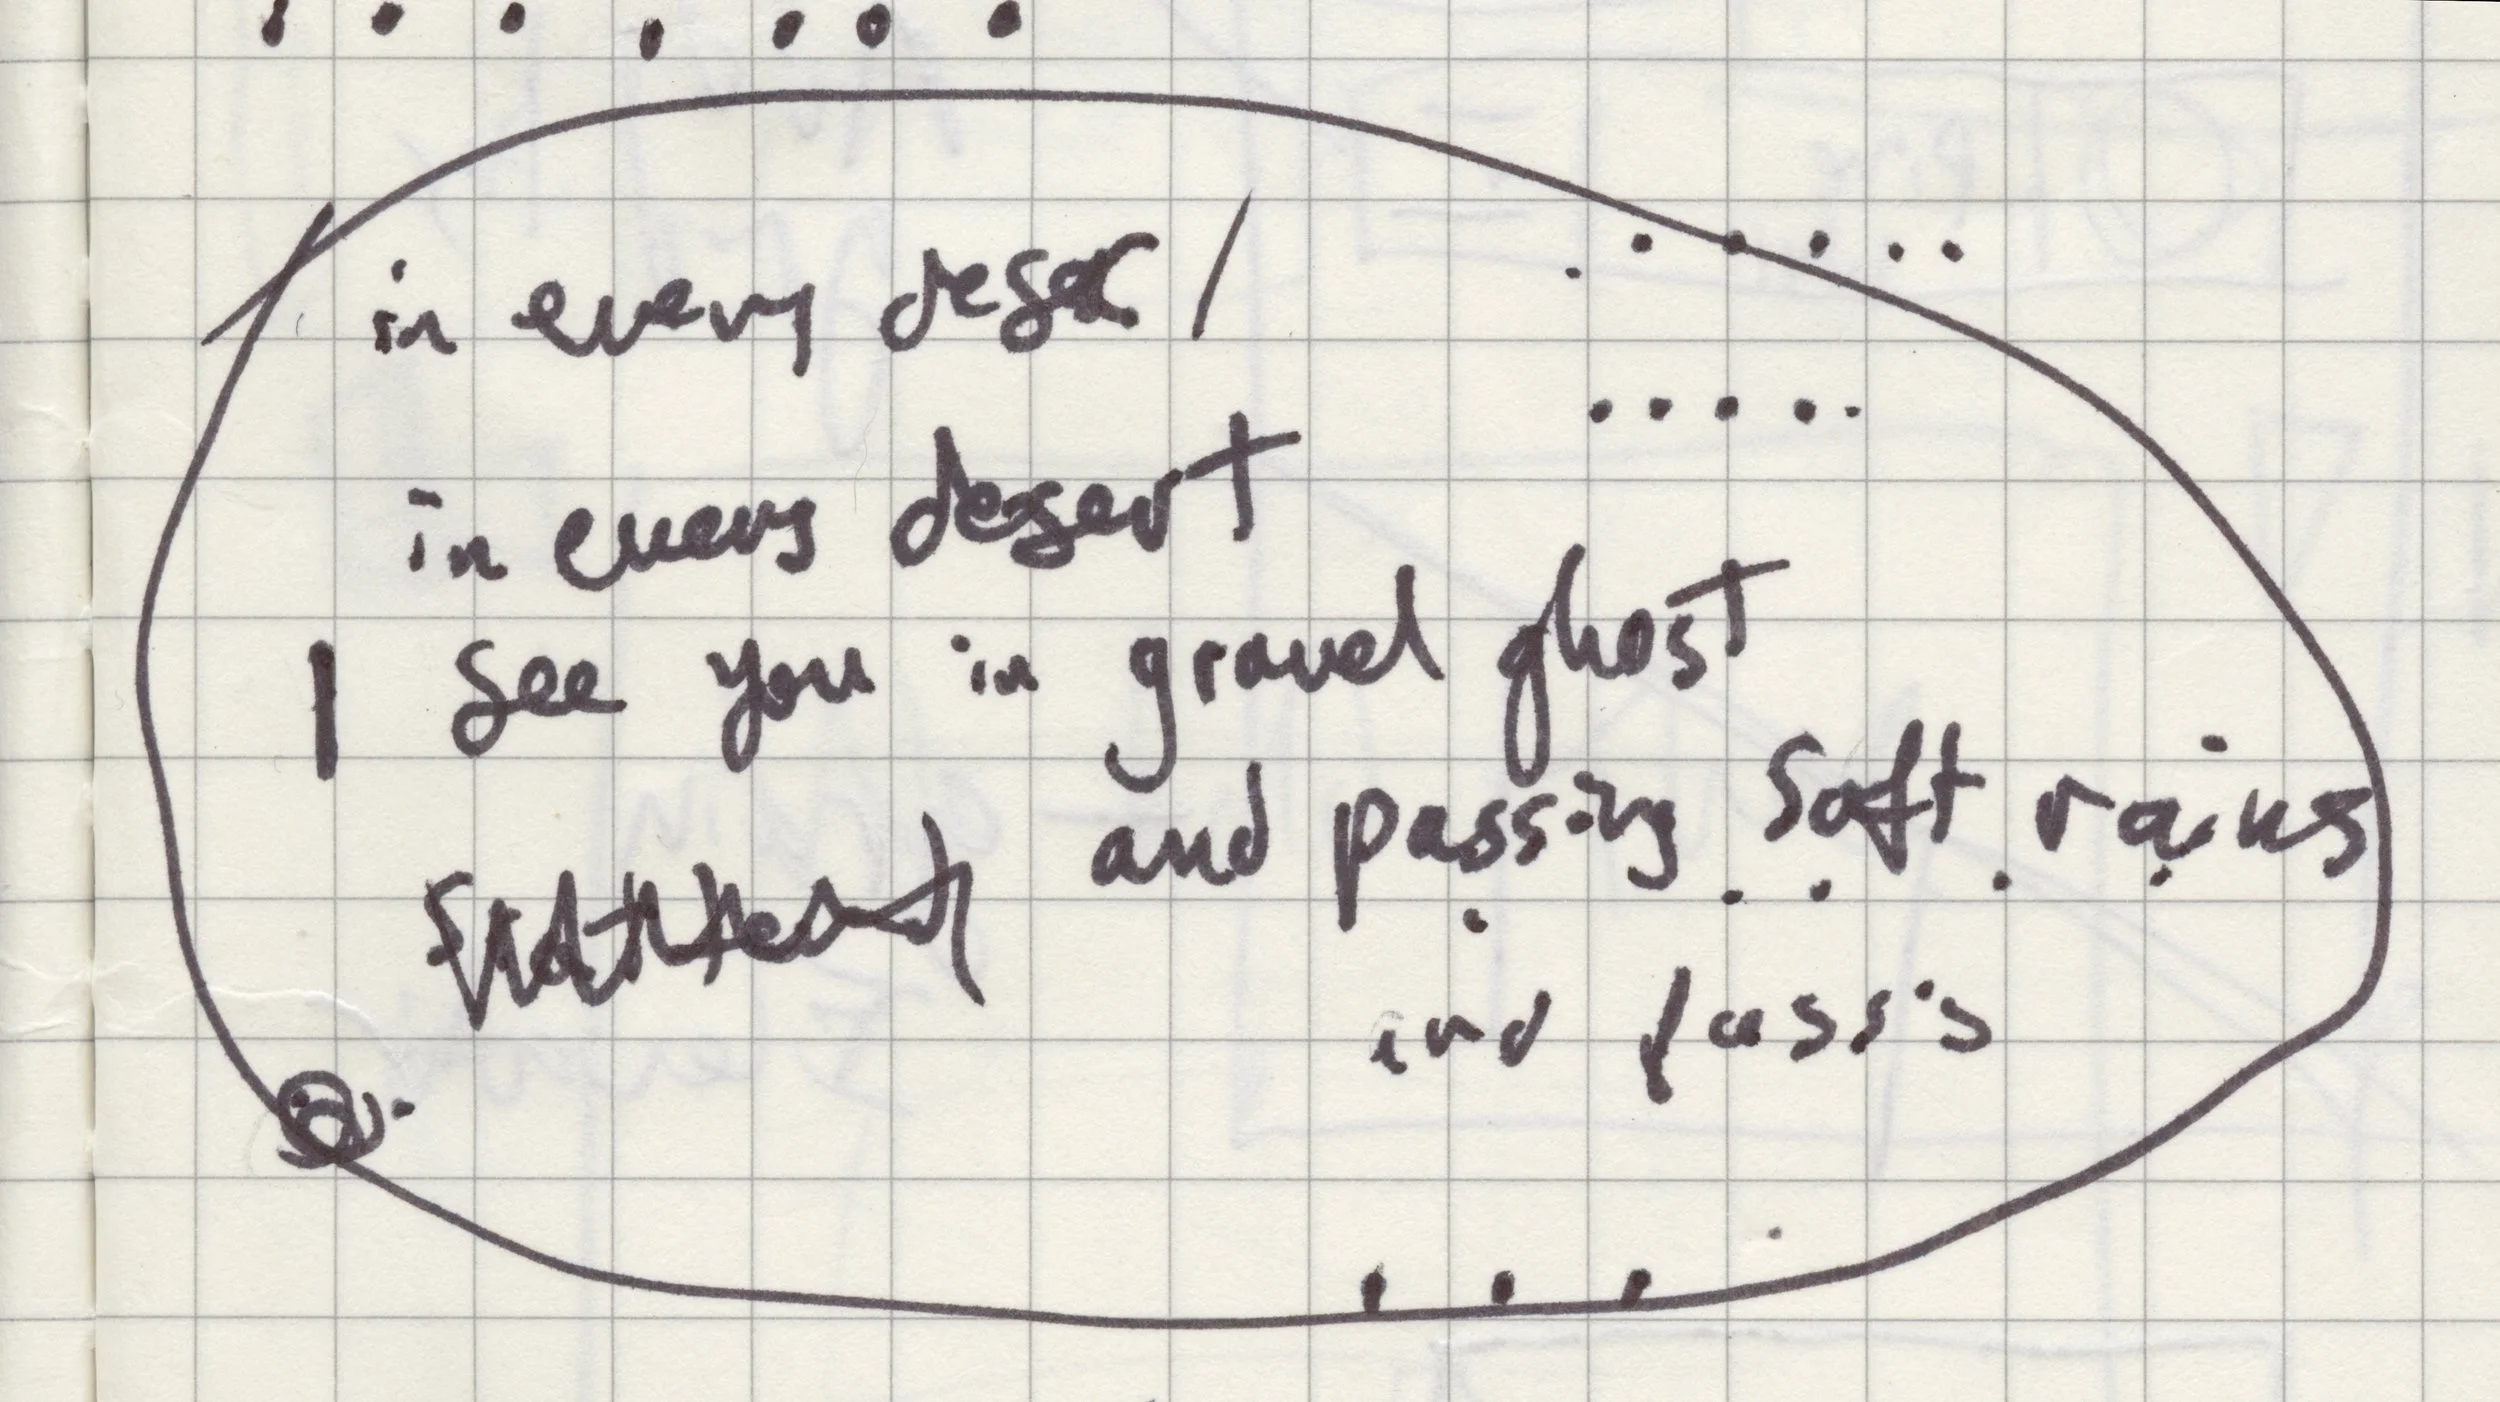 in every deser /
in every desert
I see you in gravel ghost
and passing soft rains
and passis